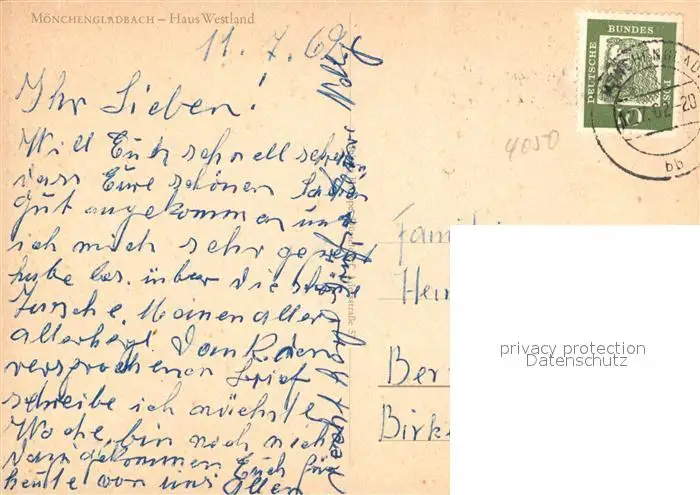 MÖNCHENGLADBACH – Haus Westland
11.7.62
Ihr Lieben!
Will Euch schnell schreiben
dass Eure schönen Sachen
gut angekommen und
ich mich sehr gefreut
habe bes. über die schöne
Tasche. Meinen aller
allerherzl. Dank. Den
versprochenen Brief
schreibe ich nächste
Woche, bin noch nicht
dazu gekommen Euch für
heute von uns allen
DEUTSCHE BUNDESPOST
10
62-20
bb
4050
Famil
Hein
Ber
Birk
privacy protection
Datenschutz